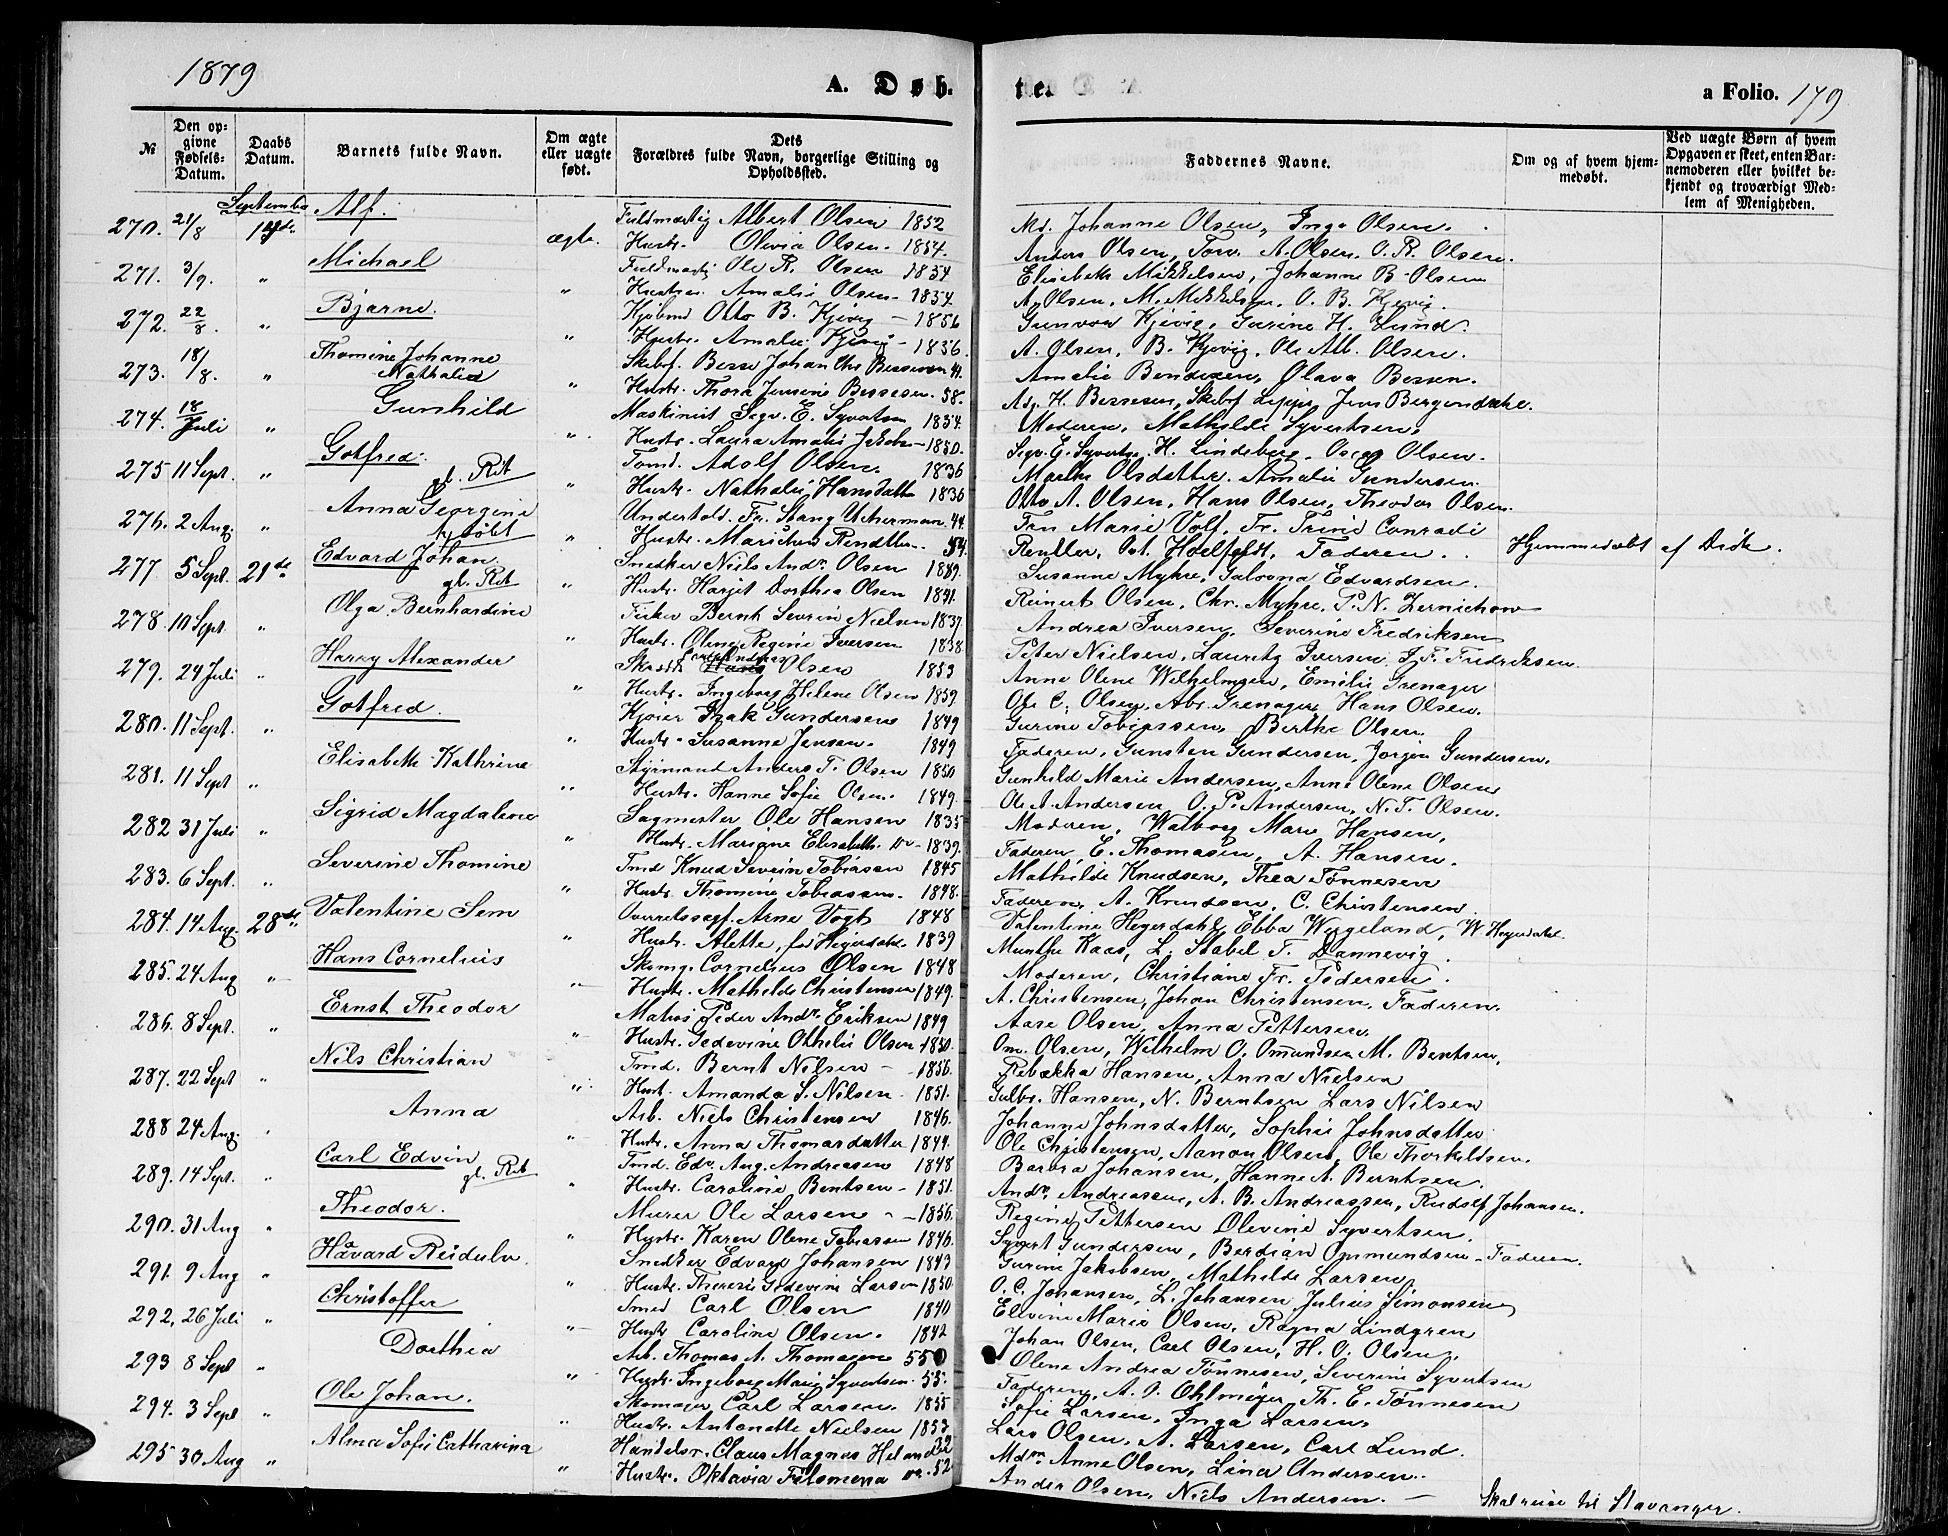 1879
A. Døb-
te.
a Folio. 179
№
Den op-
givne
Fødsels-
Datum.
Daabs
Datum.
Barnets fulde Navn.
Om ægte
eller uægte
født.
Dets
Forældres fulde Navn, borgerlige Stilling og
Opholdssted.
Faddernes Navne.
Om og af hvem hjem-
medøbt.
Ved uægte Børn af hvem
Opgaven er skeet, enten Bar-
nemoderen eller hvilket be-
kjendt og troværdigt Med-
lem af Menigheden.
September
270. 21/8 Alf. ægte. Fuldmægtig Albert Olsen 1852
Hustr. Olivia Olsen. 1854.
Md. Johanne Olsen, Inga Olsen.
Anders Olsen, Torv. A. Olsen. O. R. Olsen.
271. 3/9. " Michael " Fuldmægtig Ole R. Olsen 1854
Hustru Amalie Olsen 1854.
Elisabeth Mikkelsen, Johanne B. Olsen
A. Olsen, M. Mikkelsen, O. B. Kjevig.
272. 22/8. " Bjarne. " Kjøbmd Otto B. Kjevig - 1856
Hustr. Amalie Kjevig - 1856.
Gunvor Kjevig, Gurine H. Lund.
A. Olsen, B. Kjevig, Ole Alb. Olsen.
273. 18/8. " Thomine Johanne
Nathalia " Skibsf. Berse Johan Chr Bessesen 41.
Hustr. Thora Jensine Bessesen. 58.
Amalie Bendixen, Olava Bessen.
H. Bessesen, Skibsf Jens Bergendahl.
274. 18/Juli " Gunhild " Maskinist Segv. E. Syvertsen 1854.
Hustr. Laura Amalie Jakobs - 1850.
Moderen, Mathilde Syvertsen,
Segv. E. Syvertsen. H. Lindeberg, Oscar Olsen.
275 11 Sept. " Gotfred.
gl. Rit " Tomd. Adolf Olsen. 1836
Hustr. Nathalie Hansdatt 1836
Marthe Olsdatter. Amalie Gundersen.
Otto A. Olsen, Hans Olsen, Theodor Olsen.
276. 2 Aug. " Anna Georgine
" Undertold. Fr. Stang Uchermann. 44.
Hustr. Marichen Rendtler. 54.
Fru Marie Volf, Fr. Trine Conradi
Faderen. Hjemmedøbt af Distr.
277 5 Sept. 21de Edvard Johan
gl. Rit " Snedker Niels Andr. Olsen 1839.
Hustr. Harjet Dorthea Olsen 1841.
Susanne Myhre, Edvardsen.
Reinert Olsen, Chr. Myhre, P. N. Zernichow
278. 10 Sept. " Olga Bernhardine " Fisker Bernt Severin Nielsen 1837.
Hustr. Oline Regine Iversen 1838.
Andrea Iversen, Severine Fredriksen
Peter Nielsen, Lauritz Iversen, J. F. Fredriksen.
279. 24 Juli " Harry Alexander " Olsen 1853
Hustr. Ingeborg Helene Olsen 1859.
Anne Olene Wilhelmsen, Emilie Grenager
Ole C. Olsen, Abr. Grenager Hans Olsen.
280. 11 Sept. " Gotfred. " Kjøier Isak Gundersen 1849
Hustr. Susanne Jensen. 1849
Gurine Tobiassen, Berthe Olsen.
Faderen, Gunsten Gundersen, Jørgen Gundersen.
281. 11 Sept " Elisabeth Kathrine " Styrmand Anders T. Olsen 1850
Hustr. Hanne Sofie Olsen. 1849.
Gunhild Marie Andersen, Anne Olene Olsen
Ole A. Andersen O. P. Andersen, N. T. Olsen.
282 31 Juli " Sigrid Magdalene " Sagmester Ole Hansen 1835
Hustr. Marigne Elisabeth do - 1839.
Moderen, Walborg Marie Hansen,
Faderen, E. Thomasen, A. Hansen.
283. 6 Sept. " Severine Thomine " Tmd Knud Severin Tobiassen 1845
Hustr. Thomine Tobiassen. 1848.
Mathilde Knudsen, Thea Tønnesen
Faderen, A. Knudsen, C. Christensen
284. 14 Aug. 28de Valentine Sem " Overretssagf. Arne Vogt 1848
Hustr. Alette, f. Heyerdahl. 1839
Valentine Heyerdahl, Ebba Wygeland, W. Heyerdahl.
Munthe Kaas, L. Stabel T. Dannevig.
285. 24 Aug " Hans Cornelius " Skomg. Cornelius Olsen 1848
Hustr. Mathilde Christensen 1849.
Moderen, Christiane Fr. Pedersen.
A. Christensen, Johan Christensen. Faderen.
286. 8 Sept. " Ernst Theodor " Matros Peder Andr. Eriksen 1849
Hustr. Gedevine Othelie Olsen 1850.
Aase Olsen, Anna Pettersen,
Om. Olsen, Wilhelm O. Omundsen M. Bentsen,
287. 22 Sept " Nils Christian " Tmd. Bernt Nilsen - 1856.
Hust. Amanda S. Nilsen 1851.
Rebækka Hansen, Anna Nielsen
Gulbr. Hansen, N. Berntsen Lars Nilsen
288 24 Aug. " Anna " Arb. Niels Christensen 1846.
Hustr. Anna Thomasdatter 1844.
Johanne Johnsdatter, Sophie Johnsdatter
Ole Christensen, Aanon Olsen, Ole Thorkildsen.
289. 14 Sept. " Carl Edvin
gl. Rit " Tmd. Edv. Aug. Andreasen 1848
Hustr. Caroline Bentsen - 1851.
Barbra Johansen, Hanne A. Berntsen.
Andr. Andreassen, A. B. Andreassen, Rudolf Johansen.
290. 31 Aug " Theodor. " Murer Ole Larsen - 1856.
Hustr. Karen Olene Tobiassen 1846.
Regine Pettersen Olevine Syvertsen.
Syvert Gundersen, Berdian Ommundsen - Faderen.
291. 9 Aug " Håvard Reidulv. " Snedker Edvard Johansen 1843
Hustr. Therese Gedevine Larsen 1850
Gurine Jakobsen, Mathilde Larsen,
O. C. Johansen, L. Johansen Julius Simonsen
292, 26 Juli " Christoffer " Smed Carl Olsen 1840
Hustr Caroline Olsen. 1842
Ellvine Marie Olsen, Ragna Lindgren
Johan Olsen, Carl Olsen, H. O. Olsen,
293 8 Sept " Dorthea " Arb. Thomas A. Thomasen 55
Hustr. Ingeborg Marie Syvertsen. 55.
Olene Andrea Tønnesen, Severine Syvertsen
Faderen, A. O. Ohlmeyer, Th. E. Tønnesen
294. 3 Sept " Ole Johan. " Skomager Carl Larsen. 1855
Hustr. Antonette Nielsen 1853
Sofie Larsen, Inga Larsen,
Lars Olsen, A. Larsen, Carl Lund.
295 30 Aug " Alma Sofie Catharina " Handelsr. Claus Magnus Heland 32
Hustr. Oktavia Filomena do. 52
Mdm Anne Olsen, Lina Andersen.
Ander Olsen, Niels Andersen. - Skal reise til Stavanger.